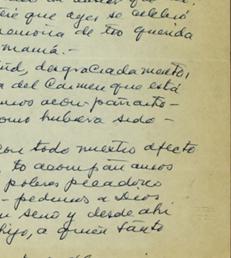 que ayer se celebró
memoria de tío querida
mamá.-
desgraciadamente,
del Carmen que está
acompañarte-
como hubiera sido -
con todo nuestro afecto
, te acompañamos
pobres pecadores
- pedimos a Dios
seno y desde ahí
hijo, a quien tanto